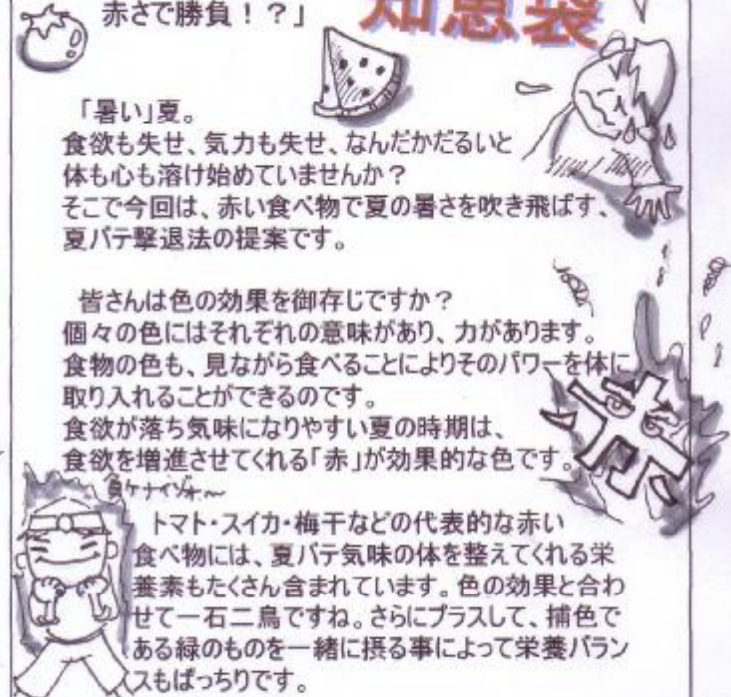 赤さで勝負！？」
知恵袋
「暑い」夏。
食欲も失せ、気力も失せ、なんだかだるいと
体も心も溶け始めていませんか？
そこで今回は、赤い食べ物で夏の暑さを吹き飛ばす、
夏バテ撃退法の提案です。
皆さんは色の効果を御存じですか？
個々の色にはそれぞれの意味があり、力があります。
食物の色も、見ながら食べることによりそのパワーを体に
取り入れることができるのです。
食欲が落ち気味になりやすい夏の時期は、
食欲を増進させてくれる「赤」が効果的な色です。
赤
負ケナイゾォ〜
トマト・スイカ・梅干などの代表的な赤い
食べ物には、夏バテ気味の体を整えてくれる栄
養素もたくさん含まれています。色の効果と合わ
せて一石二鳥ですね。さらにプラスして、捕色で
ある緑のものを一緒に摂る事によって栄養バラン
スもばっちりです。